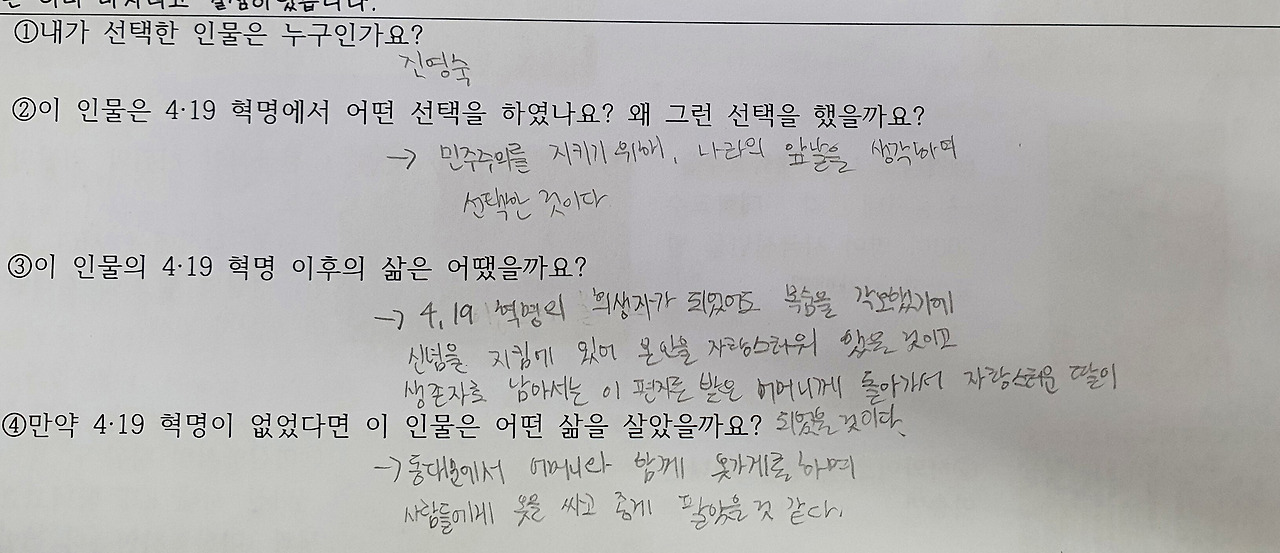 ①내가 선택한 인물은 누구인가요?
진영숙
②이 인물은 4·19 혁명에서 어떤 선택을 하였나요? 왜 그런 선택을 했을까요?
→ 민주주의를 지키기 위해, 나라의 앞날을 생각하며
선택한 것이다
③이 인물의 4·19 혁명 이후의 삶은 어땠을까요?
→ 4.19 혁명의 희생자가 되었어도 목숨을 각오했기에
신념을 지킴에 있어 본인을 자랑스러워 했을 것이고
생존자로 남아서는 이 편지를 받은 어머니께 돌아가서 자랑스러운 딸이
되었을 것이다.
④만약 4·19 혁명이 없었다면 이 인물은 어떤 삶을 살았을까요?
→ 동대문에서 어머니와 함께 옷가게를 하며
사람들에게 옷을 싸고 좋게 팔았을 것 같다.